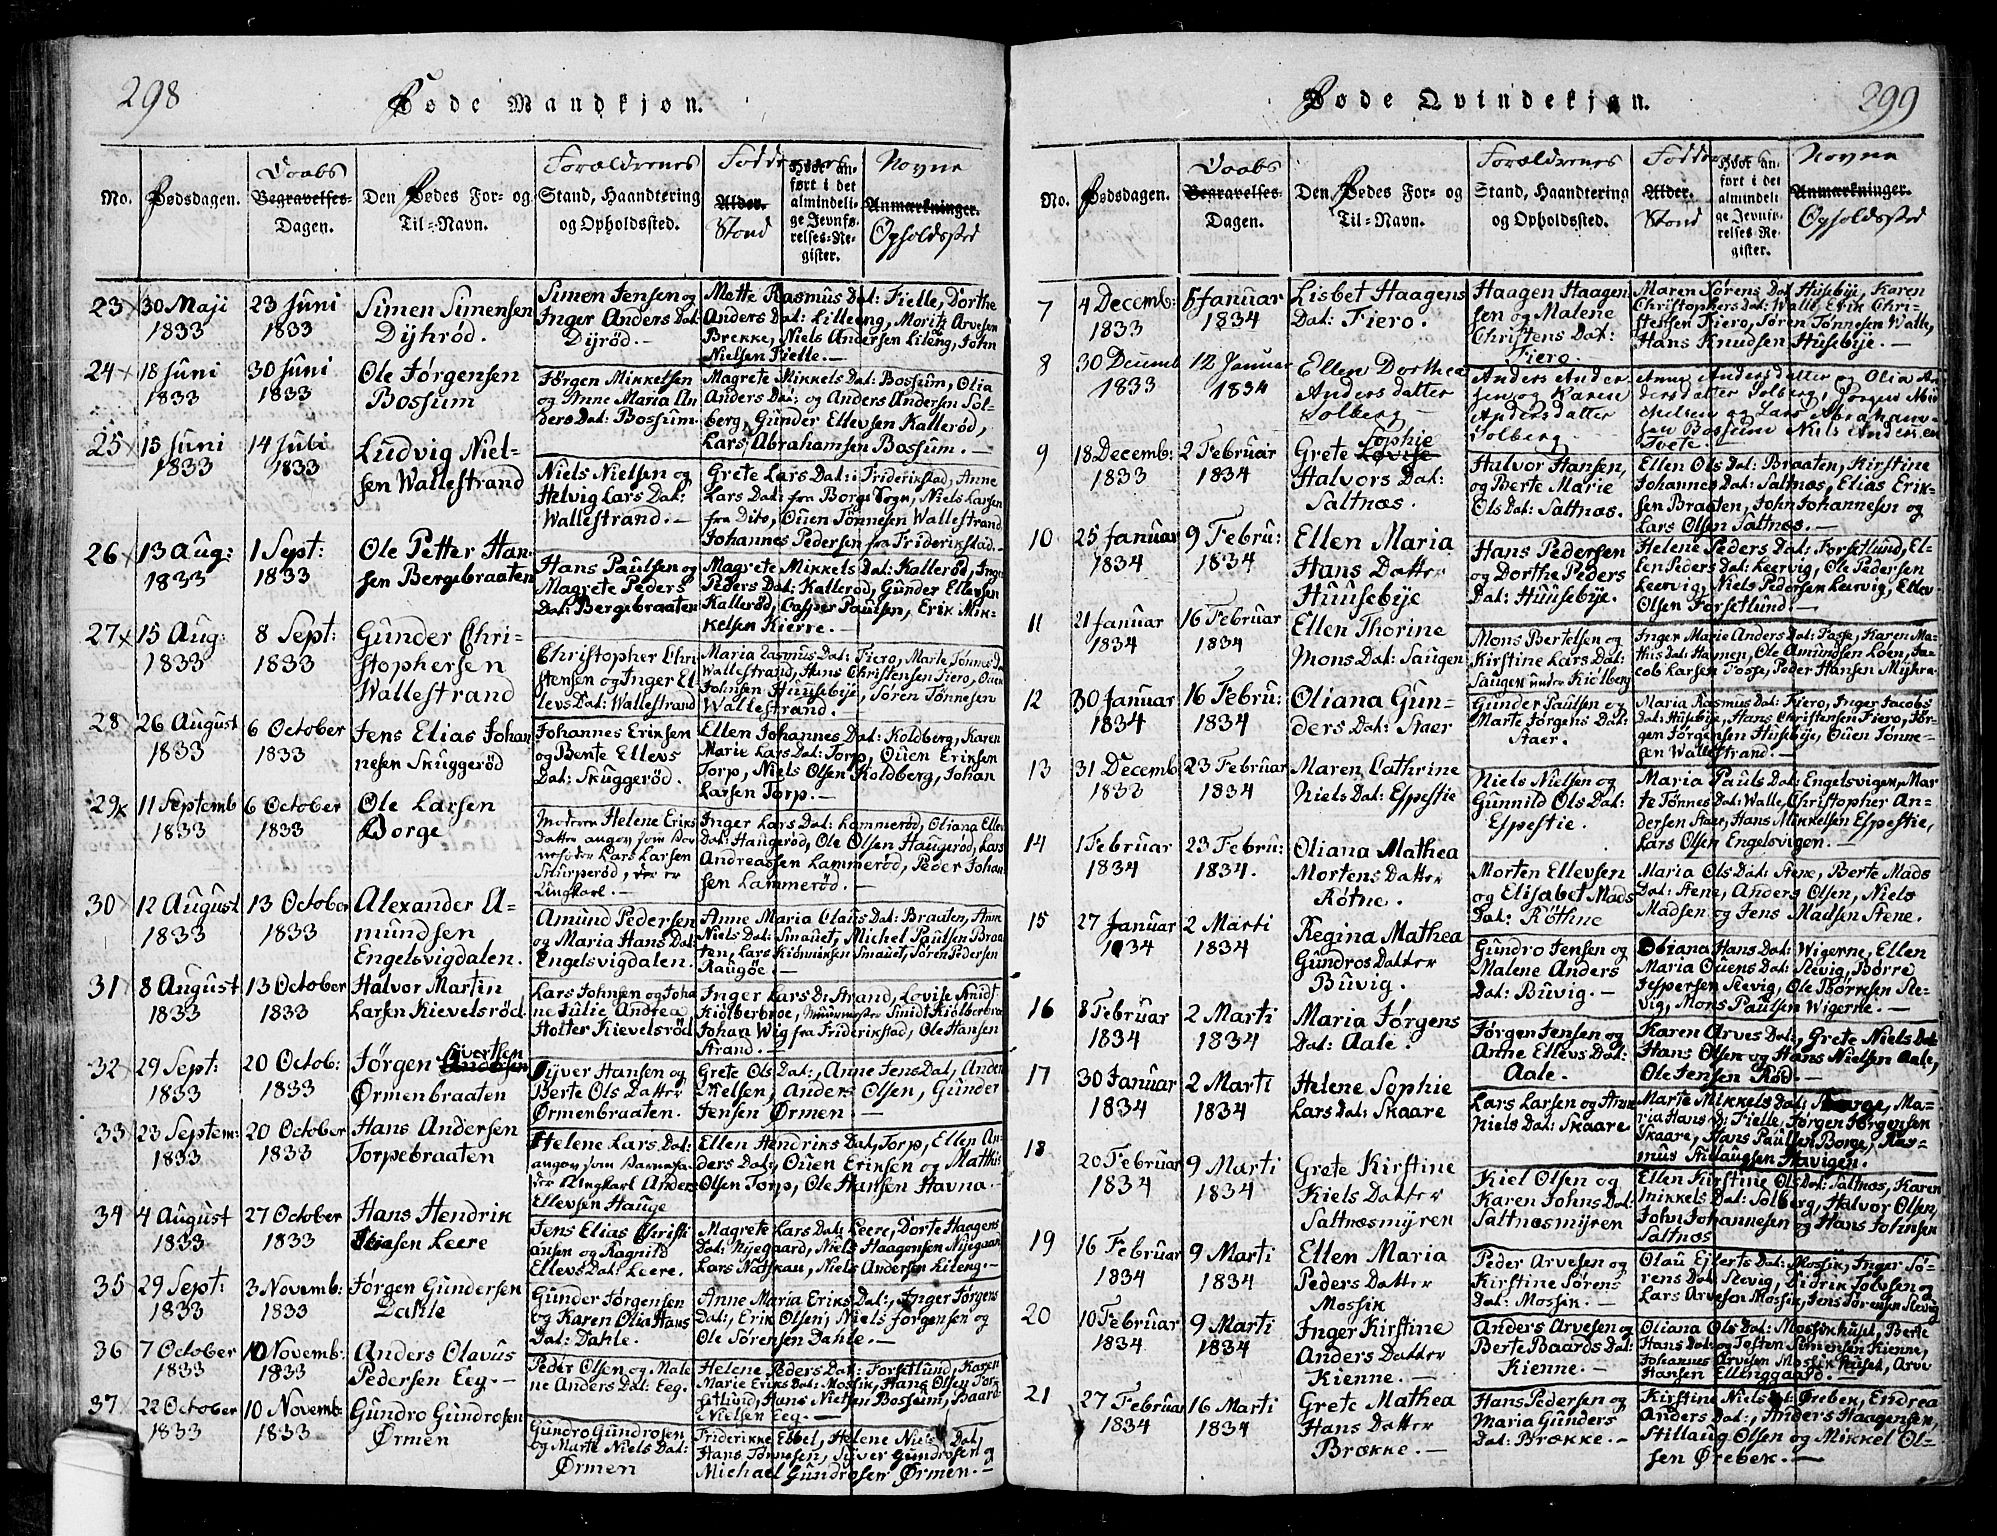 298
Døde Mandkjøn.
No.
Dødsdagen.
Daabs
Begravelses-
Dagen.
Den Dødes For- og
Til-Navn.
Forældrenes
Stand, Haandtering
og Opholdssted.
Fadderenes
Alder.
Stand
Hvor an-
ført i det
almindeli-
ge Jevnfø-
relses-Re-
gister.
Navne
Anmærkninger.
Opholdssted
23 30 Maji
1833
23 Juni
1833
Simen Simensen
Dijhrød.
Simen Jensen og
Inger Anders Dat
Dijrød.
Mette Rasmus Dat: Fielle, Dorthe
Anders Dat: Lilleeng, Moritz Arvesen
Brekke, Niels Andersen Lileng, John
Nielsen Fielle.
24 18 Juni
1833
30 Juni
1833
Ole Jørgensen
Bossum
Jørgen Mikkelsen
og Anne Maria An
ders Dat: Bossum.
Magrete Mikkels Dat: Bossum, Olia
Anders Dat: og Anders Andersen Sol-
berg, Gunder Ellevsen Kallerød,
Lars Abrahamsen Bossum.
25 15 Juni
1833
14 Juli
1833
Ludvig Niel-
sen Wallestrand
Niels Nielsen og
Helvig Lars Dat:
Wallestrand.
Grete Lars Dat: i Friderikstad, Anne
Lars Dat: fra Borge Sogn, Niels Larsen
fra Dito, Ouen Tønnesen Wallestrand
Johannes Pedersen fra Friderikstad.
26 13 Aug:
1833
1 Sept:
1833
Ole Petter Han-
sen Bergebraaten
Hans Paulsen og
Magrete Peders
Dat: Bergebraaten
Magrete Mikkels Dat: Kallerød, Inger
Peders Dat: Kallerød, Gunder Ellevsen
Kallerød, Casper Paulsen, Erik Mik-
kelsen Kierre.
27 15 Aug:
1833
8 Sept:
1833
Gunder Chri-
stophersen
Wallestrand
Christopher Chri-
stensen og Inger El-
levs Dat: Wallestrand
Maria Rasmus Dat: Fiero, Marte Tønnes Da
Wallestrand, Hans Christensen Fiero, Ouen
Johnsen Huusebije, Søren Tønnesen
Wallestrand.
28 26 August
1833
6 October
1833
Jens Elias Johan
nesen Skuggerød
Johannes Eriksen
og Bente Ellevs
Dat: Skuggerød.
Ellen Johannes Dat: Koldberg, Karen
Marie Lars Dat: Torp, Ouen Eriksen
Torp, Niels Olsen Koldberg, Johan
Larsen Torp.
29 11 Septemb
1833
6 October
1833
Ole Larsen
Borge
Moderen Helene Eriks
Datter angav som Bar
nefader Lars Larsen
Skurperød, der er
Ungkarl.
Inger Lars Dat: Lammerød, Oliana Ellev
Dat: Haugerød, Ole Olsen Haugerød, Lars
Andreassen Lammerød, Peder Johan
sen Lammerød.
30 12 August
1833
13 October
1833
Alexander A-
mundsen
Engelsvigdalen.
Amund Pedersen
og Maria Hans Dat:
Engelsvigdalen.
Anne Maria Claus Dat: Braaten, Anne
Niels Dat: Smauet, Michel Paulsen Braa
ten, Lars Smauet, Søren Pedersen
Raugøe.
31 8 August
1833
13 October
1833
Halvor Martin
Larsen Kievelsrød
Lars Johnsen og Joha
ne Julie Andrea
Holter Kievelsrød
Inger Lars D: Strand, Lovise Smidt
Kiølberbroe, Smidt Kiølberbroe
Johan Wig fra Friderikstad, Ole Hansen
Strand.
32 29 Sept:
1833
20 Octob:
1833
Jørgen Sivertsen Andersen
Ørmenbraaten
Syver Hansen og
Berte Ols Datter
Ørmenbraaten.
Grete Ols Dat:, Anne Jens Dat, Anders
Nielsen, Anders Olsen, Gunder
Jensen Ørmen
33 23 Septem:
1833
20 October
1833
Hans Andersen
Torpebraaten
Helene Lars Dat:
angav som Barnefa-
der Ungkarl Anders
Ellevsen Hauge
Ellen Hendriks Dat, Torp, Ellen An-
ders Dat:, Ouen Eriksen og Mathis
Olsen Torp, Ole Hansen Havna.
34 4 August
1833
27 October
1833
Hans Hendrik
Jensen Leere
Jens Elias Christi
ansen og Ragnild
Ellevs Dat: Leere.
Magrete Lars Dat: Leere, Dorte Haagens
Dat: Nijegaard, Niels Haagensen Nijegaar
Lars Natskau, Niels Andersen Lileng.
35 29 Sept:
1833
3 Novemb:
1833
Jørgen Gundersen
Dahle
Gunder Jørgensen
og Karen Olia Hans
Dat: Dahle.
Anne Maria Eriks Dat:, Inger Jørgens
Dat:, Erik Olsen, Niels Jørgensen og
Ole Sørensen Dahle.
36 7 October
1833
10 Novemb:
1833
Anders Olavus
Pedersen Eeg.
Peder Olsen og Male
ne Anders Dat: Eeg.
Helene Peders Dat: Forsetlund, Karen
Marie Eriks Dat: Mossik, Hans Olsen Fork
setlund, Hans Nielsen Bossum, Baard
Nielsen Eeg.
37 22 October
1833
10 Novemb:
1833
Gundro Gundrosen
Ørmen
Gundro Gundrosen
og Marte Niels Dat:
Ørmen
Friderikke Ebbel, Helene Niels Dat,
Hans Tønnesen, Syver Gundrosen og
Michael Gundrosen Ørmen.
299
Døde Qvindekjøn.
No.
Dødsdagen.
Daabs
Begravelses-
Dagen.
Den Dødes For- og
Til-Navn.
Forældrenes
Stand, Haandtering
og Opholdssted.
Fadderenes
Alder.
Stand
Hvor an-
ført i det
almindeli-
ge Jevnfø-
relses Re-
gister.
Navne
Anmærkninger.
Opholdssted
7 4 Decemb:
1833
5 Januar
1834
Lisbet Haagens
Dat: Fiero.
Haagen Haagen
sen og Malene
Christens Dat:
Fiero.
Maren Sørens Dat Husebije, Karen
Christophers Dat: Walle, Erik Chri-
stensen Fiero, Søren Tønnesen Walle,
Hans Knudsen Husebije.
8 30 Decemb
1833
12 Januar
1834
Ellen Dorthea
Anders datter
Solberg
Anders Ander
sen og Karen
Andersdatter
Solberg.
Anne Andersdatter og Olia An
dersdatter Solberg, Jørgen Mic
chelsen og Lars Abraham-
sen Bossum Niels Andersen
Tvete.
9 18 Decemb:
1833
2 Februar
1834
Grete Sophie Lovise
Halvors Dat:
Saltnæs.
Halvor Hansen,
og Berte Marie
Ols Dat: Saltnæs.
Ellen Ols Dat: Braaten, Kirstine
Johannes Dat: Saltnæs, Elias Erik-
sen Braaten, John Johannesen og
Lars Olsen Saltnæs.
10 25 Januar
1834
9 Febru:
1834
Ellen Maria
Hans Datter
Huusebije
Hans Pedersen
og Dorthe Peders
Dat: Huusebije.
Helene Peders Dat: Forsetlund, El-
len Peders Dat: Leervig, Ole Pedersen
Leervig, Niels Pedersen Leervig, Ellev
Olsen Forsetlund.
11 21 Januar
1834
16 Februar
1834
Ellen Thorine
Mons Dat: Saugen
Mons Bertelsen og
Kirstine Lars Dat:
Saugen under Kiølberg
Inger Marie Anders Dat: Fosse, Karen Ma-
this Dat: Haamen, Ole Amundsen Loen, Ja-
cob Larsen Fosse, Peder Hansen Mijskra
12 30 Januar
1834
16 Febru:
1834
Oliana Gun-
ders Dat: Staer
Gunder Paulsen og
Marte Jørgens Dat:
Staer.
Maria Rasmus Dat: Fiero, Inger Jacobs
Dat: Husebije, Hans Christensen Fiero, Jør-
gen Jørgensen Husebije, Ouen Tønne-
sen Wallestrand.
13 31 Decemb
1833
23 Februar
1834
Maren Cathrine
Niels Dat: Espestie
Niels Nielsen og
Gunnild Ols Dat:
Espestie.
Maria Pauls Dat: Engelsvigen, Mar
te Tønnes Dat: Walle, Christopher An-
dersen Staer, Hans Mikkelsen Espestie,
Lars Olsen Engelsvigen.
14 1 Februar
1834
23 Febru:
1834.
Oliana Mathea
Mortens Datter
Røtne.
Morten Ellevsen
og Elisabet Mads
Dat: Røtne
Maria Ols Dat: Stene, Berte Mads
Dat: Stene, Anders Olsen, Niels
Madsen og Jens Madsen Stene.
15 27 Januar
1834
2 Marti
1834
Regina Mathea
Gundros Datter
Buvig.
Gundro Jensen og
Malene Anders
Dat: Buvig.
Oliana Hans Dat: Wigerne, Ellen
Maria Ouens Dat: Slevig, Børre
Jespersen Slevig, Ole Børresen Sle-
vig, Mons Paulsen Wigerne.
16 8 Februar
1834
2 Marti
1834
Maria Jørgens
Dat: Aale.
Jørgen Jensen og
Anne Ellevs Dat:
Aale.
Karen Arves Dat, Grete Niels Dat
Hans Olsen og Hans Nielsen Aale,
Ole Jensen Rød.
17 30 Januar
1834
2 Marti
1834
Helene Sophie
Lars Dat: Skaare
Lars Larsen og Anne
Niels Dat: Skaare
Marte Mikkels Dat: Borge, Ma-
ria Hans D: Fielle, Jørgen Jørgensen
Skaare, Hans Paulsen Borge, Ras-
mus Stillaugsen Havigen.
18
20 Februar
1834
9 Marti
1834
Grete Kirstine
Kiels Datter
Saltnæsmijren
Kiel Olsen og
Karen Johns Dat:
Saltnæsmijren
Ellen Kirstine Ols Dat: Saltnæs, Karen
Mikkels Dat: Solberg, Halvor Olsen,
John Johannesen og Hans Johnsen
Saltnæs
19 16 Februar
1834
9 Marti
1834
Ellen Maria
Peders Datter
Mossik
Peder Arvesen og
Kirstine Sørens
Dat: Mossik.
Olau Ejlerts Dat: Mossik, Inger Sø-
rens Dat: Slevig, Didrik Tolvsen og
Lars Arvesen Mossik, Jens Sørensen Slevig
20 10 Februar
1834
9 Marti
1834
Inger Kirstine
Anders Datter
Kienne.
Anders Arvesen og
Berte Baards Dat:
Kienne.
Oliana Ols Dat: Mossikhuset, Berte
Hans Dat: og Josten Simensen Kienne,
Johannes Arvesen Mossikhuset, Arve
Hansen Ellenggaard.
21 27 Februar
1834
16 Marti
1834
Grete Mathea
Hans Datter
Brække.
Hans Pedersen og
Maria Gunders
Dat: Brække.
Kirstine Niels D: Ørebek, Endrea
Anders Dat:, Anders Haagensen,
Stillaug Olsen og Mikkel Ol-
sen Ørebek.